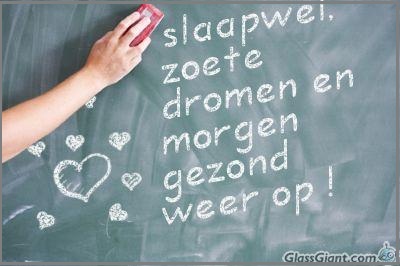 slaapwel.
zoete
dromen en
morgen
gezond
weer op !
GlassGiant.com